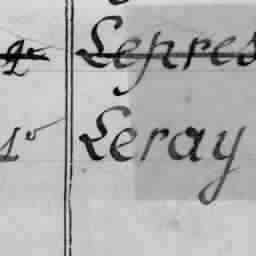 Lepres
1º Leray